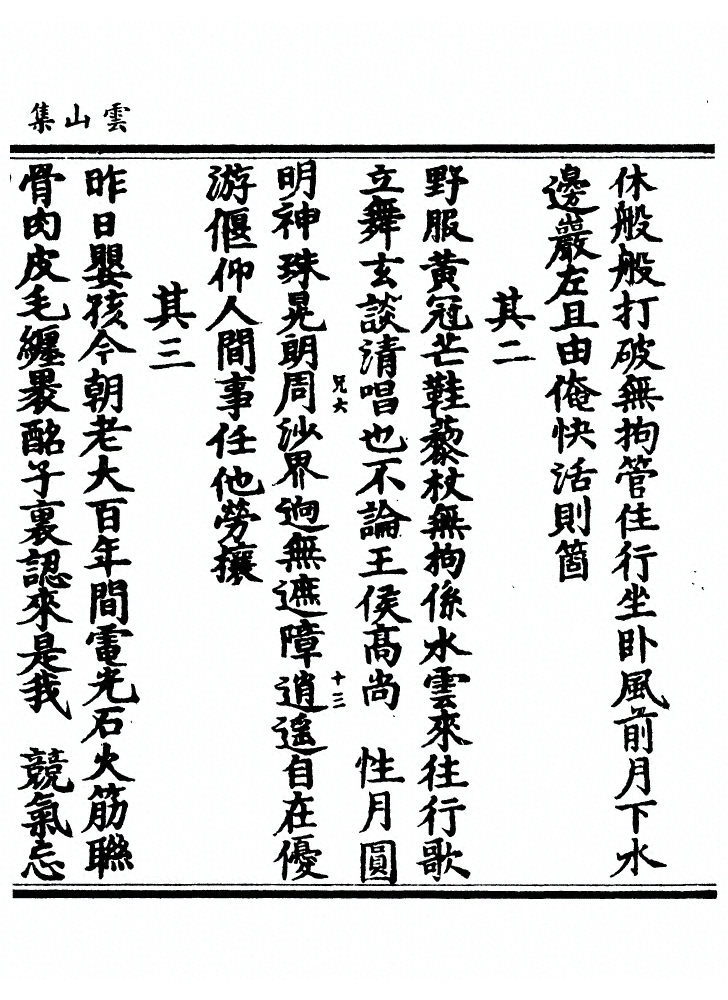 雲山集
休般般打破無拘管住行坐卧風前月下水
邊巖左且由俺快活則箇
其二
野服黃冠芒鞋藜杖無拘係水雲來往行歌
立舞玄談清唱也不論王侯髙尚　性月圓
明神珠晃朗周沙界逈無遮障逍遙自在優
兄六
十三
游偃仰人間事任他勞攘
其三
昨日嬰孩今朝老大百年間電光石火筋聮
骨肉皮毛纒褁酩子裏認來是我　競氣忘